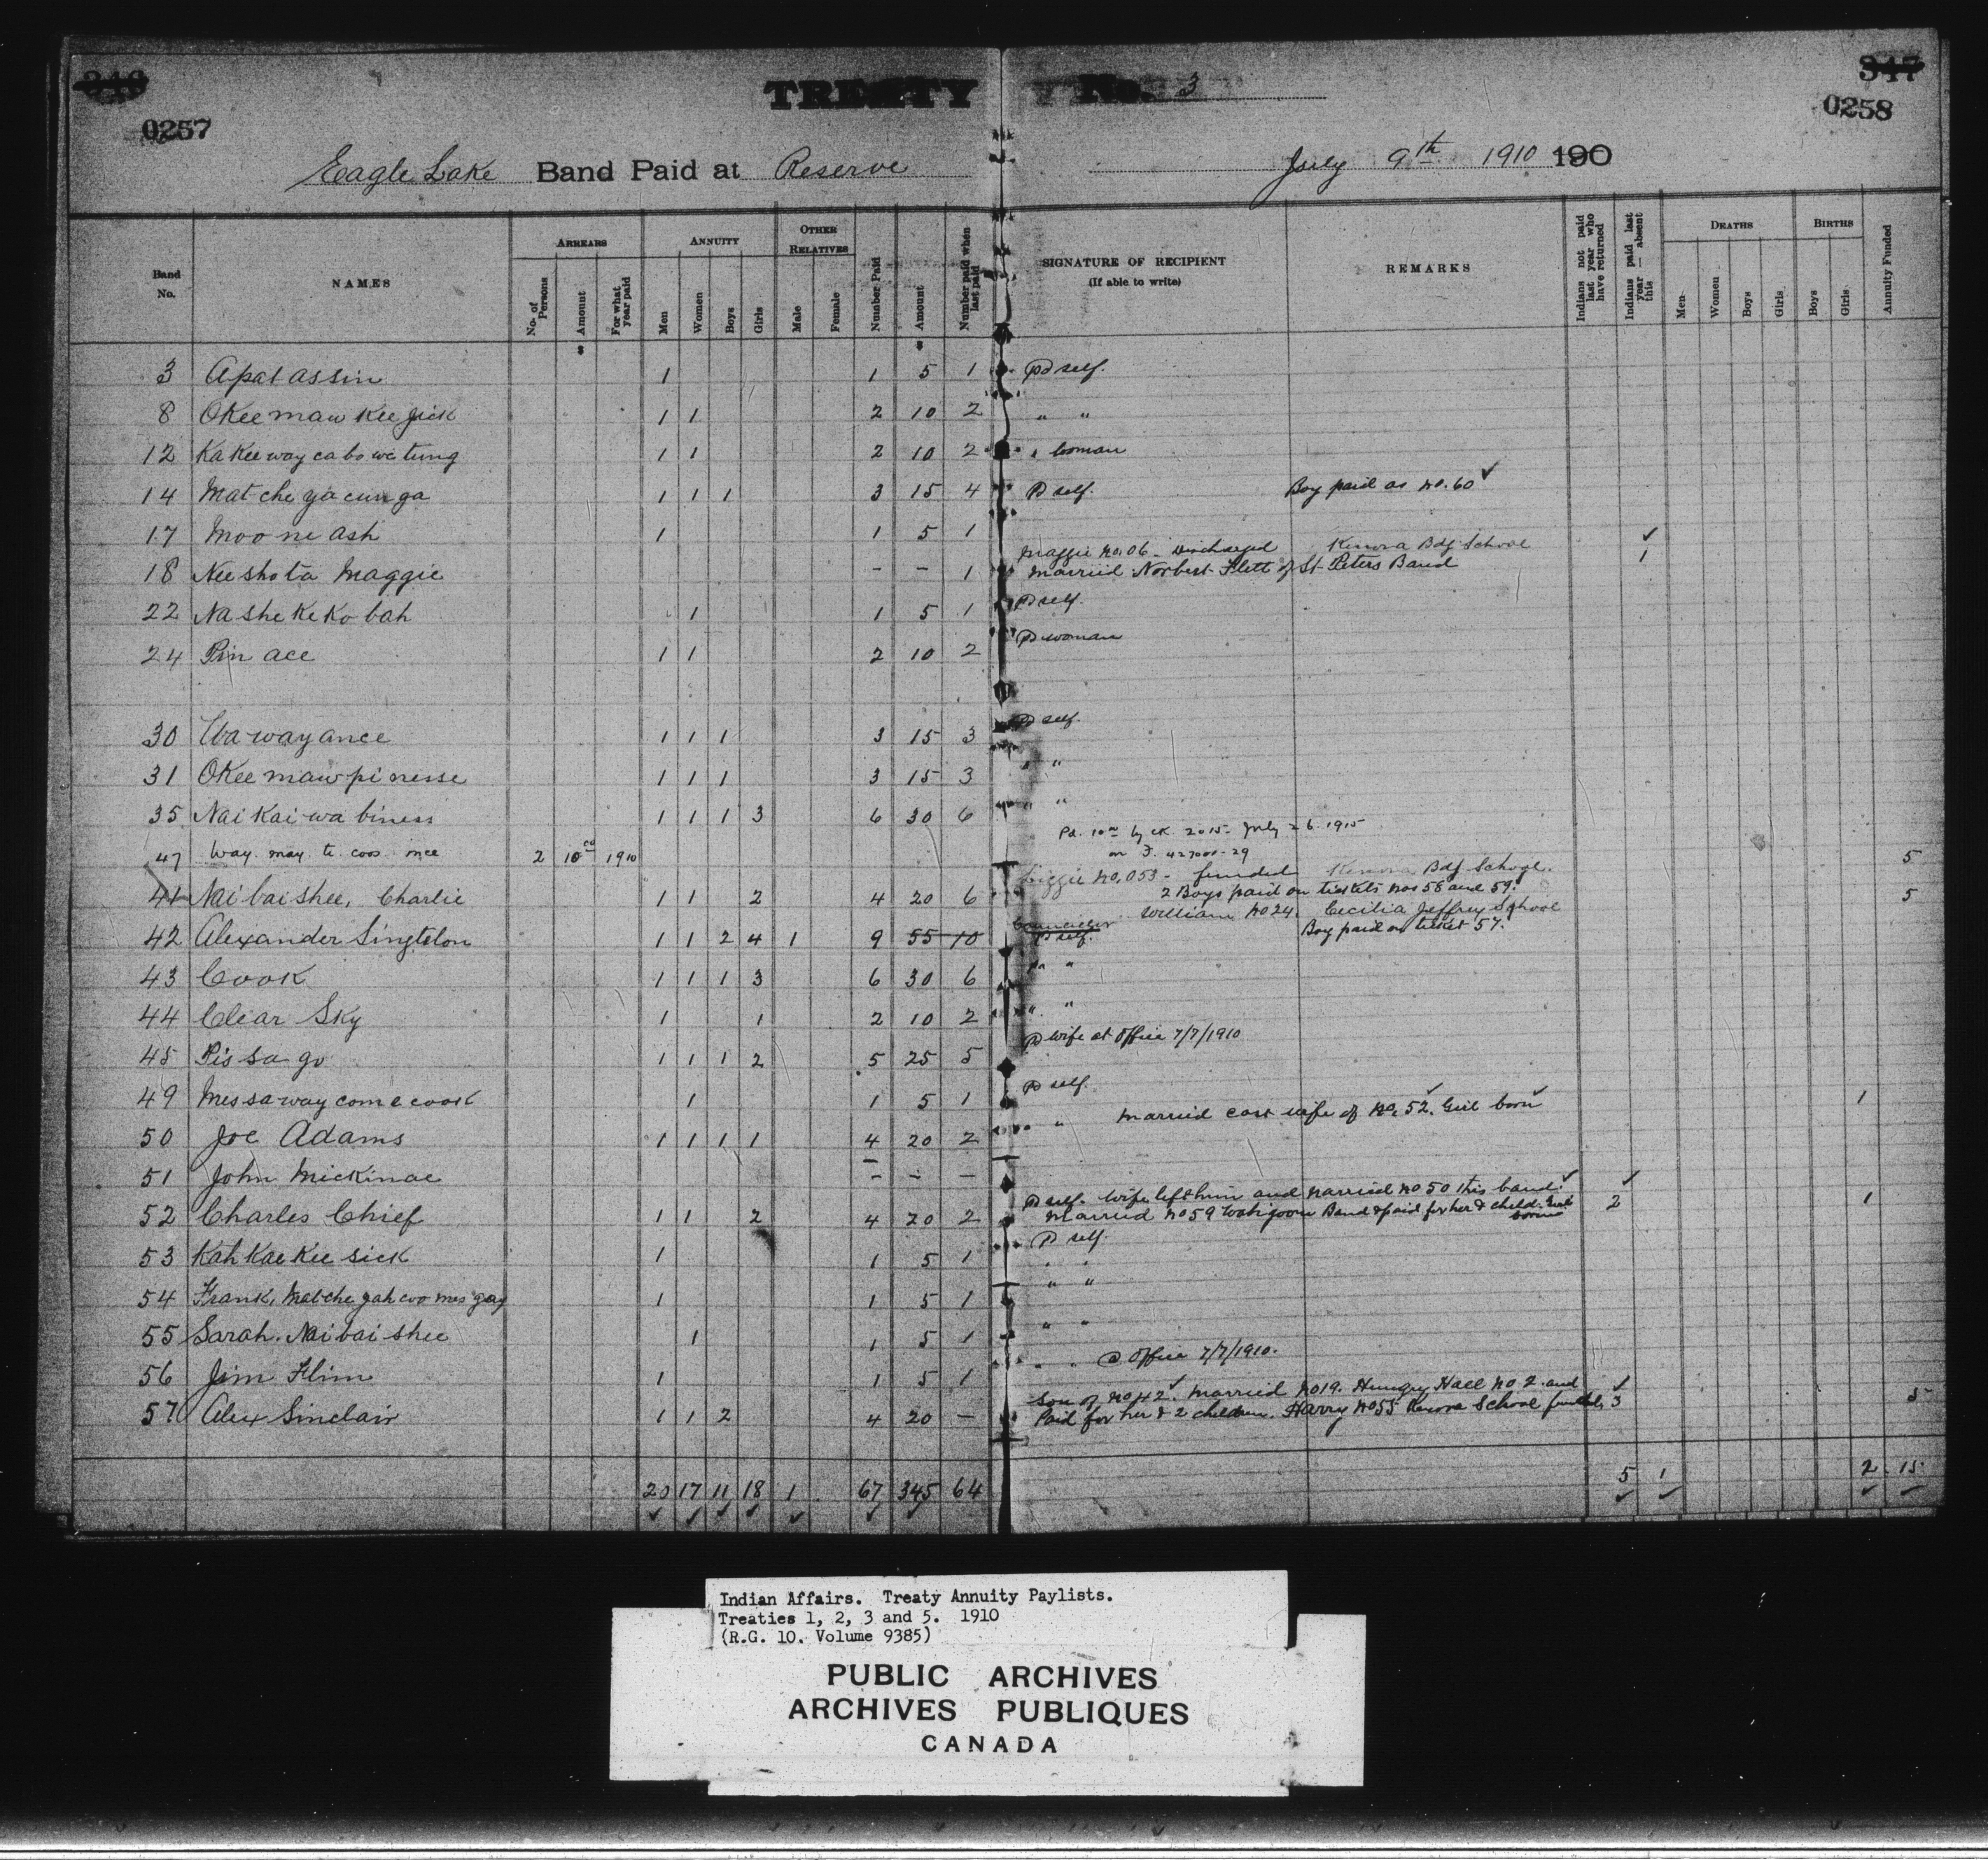 346 TREATY No. 3 347
0257 0258
Eagle Lake Band Paid at Reserve July 9th 1910 190
Band No. NAMES ARREARS No. of Persons Amount For what year paid ANNUITY Men Women Boys Girls OTHER RELATIVES Male Female Number Paid Amount Number paid when last paid SIGNATURE OF RECIPIENT (If able to write) REMARKS Indians not paid last year who have returned Indians paid last year — absent this DEATHS Men Women Boys Girls BIRTHS Boys Girls Annuity Funded
$ $
3 Apatassin 1 1 5 1 Pd self.
8 Okeemaw kee jick 1 1 2 10 2 " "
12 Ka Kee way ca bo we tung 1 1 2 10 2 " woman
14 Mat che ga cun ga 1 1 1 3 15 4 Pd self. Boy paid as no. 60 ✓
17 Moo ne ash 1 1 5 1 ✓
Maggie no. 06 - Discharged Kenora Bdg School
18 Nee sho ta Maggie - - 1 Married Norbert Flett of St Peters Band 1
22 Na she Ke Ko bah 1 1 5 1 Pd self.
24 Pin ace 1 1 2 10 2 Pd woman
30 Wa way ance 1 1 1 3 15 3 Pd self.
31 OKee maw pi nesse 1 1 1 3 15 3 " "
35 Nai Kai wa biness 1 1 1 3 6 30 6 " "
Pd. 10 00 by ck. 2015 - July 26. 1915
47 Way. may. te. coos. ince 2 10 00 1910 on F. 427000-29 5
Lizzie no. 053 - funded Kenora Bdg School.
41 Nai bai shee, Charlie 1 1 2 4 20 6 2 Boys paid on tickets nos 58 and 59. 5
William no 24. Cecilia Jeffrey School
42 Alexander Singleton 1 1 2 4 1 9 55 10 Councillor Pd self. Boy paid on ticket 57.
43 Cook 1 1 1 3 6 30 6 Pd "
44 Clear Sky 1 1 2 10 2 " "
45 Pis sa go 1 1 1 2 5 25 5 Pd wife at Office 7/7/1910
49 Mes sa way come cook 1 1 5 1 Pd self. 1
50 Joe Adams 1 1 1 1 4 20 2 " married cast wife of no. 52. ✓ Girl born ✓
51 John Mickinac - - - ✓
Pd self. Wife left him and married no 50 this band. ✓
52 Charles Chief 1 1 2 4 20 2 Married no 59 Wabigoon Band & paid for her & child. Girl born 2 1
53 Kah Kae Kee sick 1 1 5 1 Pd self.
54 Frank, Mat che gah coo mes gay 1 1 5 1 " "
55 Sarah. Nai bai shee 1 1 5 1 " "
56 Jim Flinn 1 1 5 1 " " @ Office 7/7/1910.
Son of no 42 ✓. Married no 19. Hungry Hall no 2. and ✓
57 Alex Sinclair 1 1 2 4 20 — Paid for her & 2 children. Harry no 55 Kenora School funded, 3 5
20 17 11 18 1 67 345 64 5 1 2 15
✓ ✓ ✓ ✓ ✓ ✓ ✓ ✓ ✓ ✓ ✓
Indian Affairs. Treaty Annuity Paylists.
Treaties 1, 2, 3 and 5. 1910
(R.G. 10. Volume 9385)
PUBLIC ARCHIVES
ARCHIVES PUBLIQUES
CANADA